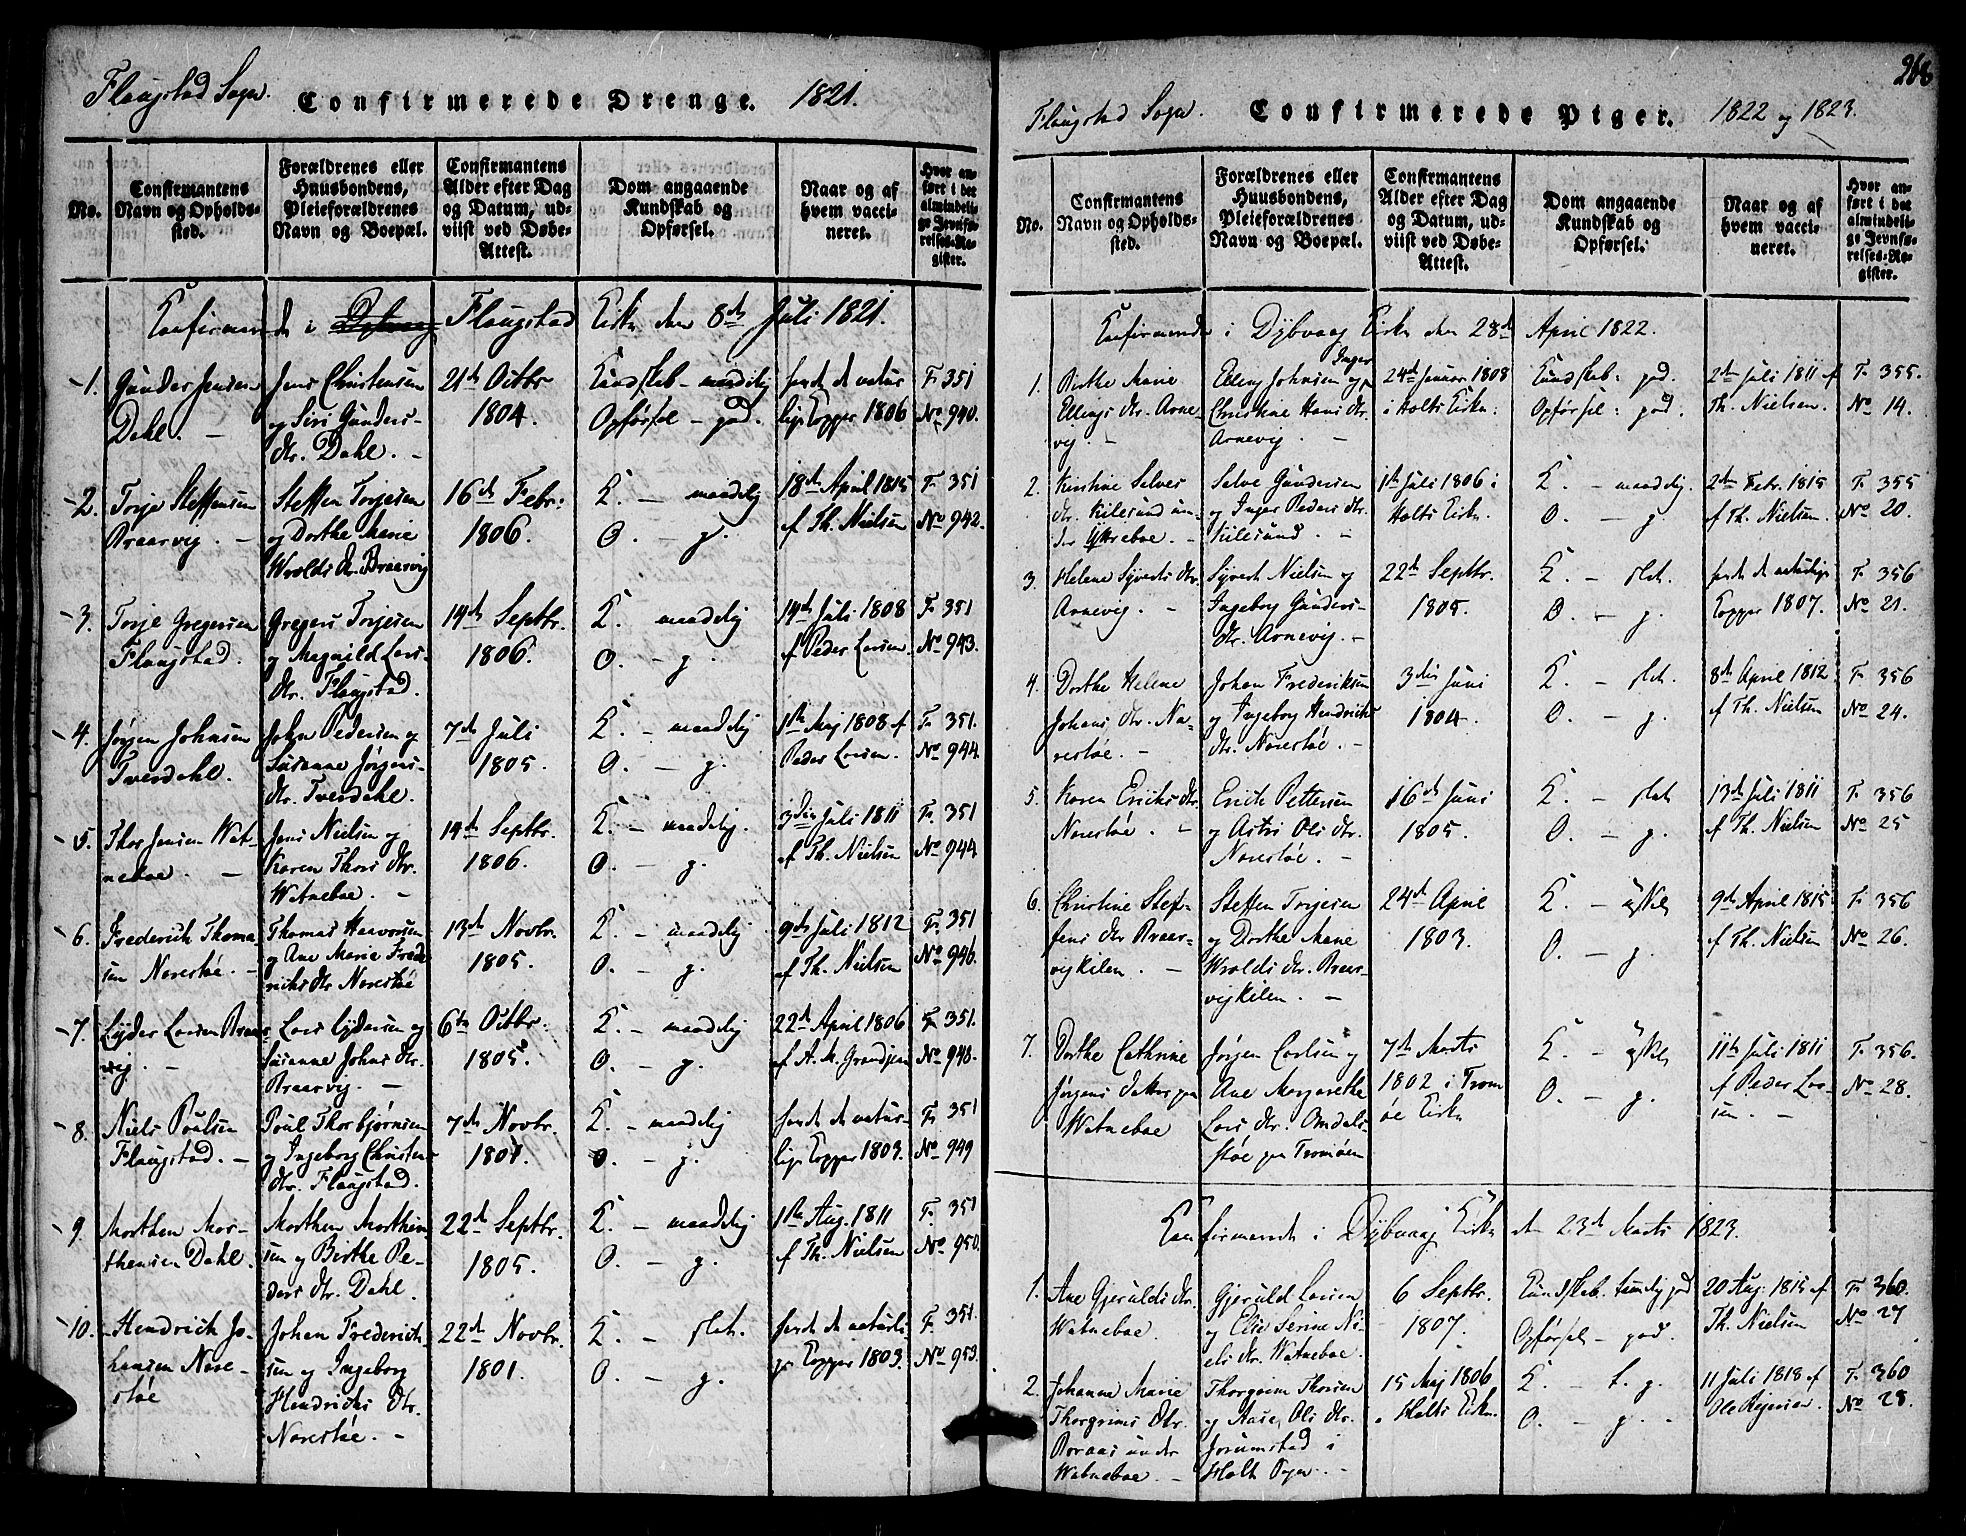 Flaugstad Sogn. Confirmerede Drenge. 1821.
No.
Confirmantens Navn og Opholds-sted.
Forældrenes eller Huusbondens, Pleieforældrenes Navn og Boepæl.
Confirmantens Alder efter Dag og Datum, ud-viist ved Døbe-Attest.
Dom angaaende Kundskab og Opførsel.
Naar og af hvem vacci-neret.
Hvor an-ført i det almindeli-ge Jevnfø-relses-Re-gister.
Confirmerede i Flaugstad Kirke den 8de Juli 1821.
1. Gunder Jensen Dahl. Jens Christensen og Siri Gunders-dtr. Dahl. 21de Octbr 1804. Kundskab – maadelig Opførsel – god. havde de naturlige Copper 1806 F. 351 No 940.
2. Torje Steffensen Braarvig. Steffen Torjesen og Dorthe Marie Wrolds dtr. Braarvig 16de Febr: 1806. K. – maadelig O. – g. 18de April 1815 af Th. Nielsen F. 351 No 942.
3. Torje Gregersen Flaugstad. Gregers Torjesen og Magnild Lars-dtr. Flaugstad. 14de Septbr. 1806. K. maadelig O. – g. 14de Juli 1808 af Peder Larsen F. 351 No 943.
4. Jørgen Johnsen Tverdahl. John Pedersen og Susanne Jørgens-dtr. Tverdahl. 7de Juli 1805. K. – maadelig O. – g. 1ste Maj 1808 af Peder Larsen. F. 351. No 944
5. Thor Jensen Wat-neboe. Jens Nielsen og Karen Thors dtr. Watneboe. 14de Septbr. 1806. K. – maadelig. O. – g. 3die Juli 1811 af Th. Nielsen F. 351 No 944.
6. Frederich Thoma-sen Narestøe. Thomas Haavorsen og Ane Marie Frede-richs dtr Narestøe 13de Novbr. 1805. K. – maadelig O. – g. 9de Juli 1812 af Th. Nielsen F. 351 No 946.
7. Lyder Larsen Braar-vig. Lars Lydersen og Susanne Johns dtr. Braarvig. 6te Octbr. 1805. K. – maadelig O. – g. 22de April 1806 af A. M. Grandjean F. 351. No 940.
8. Niels Poulsen Flaugstad. Poul Thorbjørnsen og Ingeborg Christens-dtr. Flaugstad. 7de Novbr. 1801. K. – maadelig O. – g. havde de natur-lige Copper 1803. F. 351 No 949
9. Morthen Mor-thensen Dahl. Morthen Morthen-sen og Birthe Pe-ders dtr. Dahl. 22de Septbr. 1805. K. – maadelig O. – g. 1ste Aug. 1811 af Th. Nielsen F. 351 No 950.
10. Hendrich Jo-hansen Nare-støe Johan Frederich-sen og Ingeborg Hendrichs dtr. Narestøe. 22de Novbr. 1801. K. – slet. O. – g. havde de naturli-ge Copper 1803. F. 351. No 953.
268
Flaugstad Sogn. Confirmerede Piger. 1822 og 1823.
No.
Confirmantens Navn og Opholds-sted.
Forældrenes eller Huusbondens, Pleieforældrenes Navn og Boepæl.
Confirmantens Alder efter Dag og Datum, ud-viist ved Døbe-Attest.
Dom angaaende Kundskab og Opførsel.
Naar og af hvem vacci-neret.
Hvor an-ført i det almindeli-ge Jevnfø-relses-Re-gister.
Confirmerede i Dybvaag Kirke den 28de April 1822.
1. Birthe Marie Ellings dtr. Arne-vig. Elling Johnsen og Inger Christine Hans dtr. Arnevig. 24de Januar 1808 i Holts Kirke. Kundskab: god. Opførsel: god. 2den Juli 1811 af Th. Nielsen. F. 355. No 14.
2. Kirstine Salves dtr. Kilesund un-der Yttreboe. Salve Gundersen og Inger Peders dtr. Kilesund. 1ste Juli 1806 i Holts Kirke. K. – maadelig. O. – g. 2den Febr. 1815 af Th. Nielsen. F. 355 No 20.
3. Helene Syverts dtr. Arnevig. Syvert Nielsen og Ingeborg Gunders-dtr. Arnevig. 22de Septbr. 1805. K. – slet. O. – g. havde de naturlige Copper 1807. F. 356 No 21.
4. Dorthe Helene Johans dtr. Na-restøe. Johan Frederiksen og Ingeborg Hendrichs dtr. Narestøe. 3die Juni 1804. K. – slet. O. – g. 8de April 1812 af Th. Nielsen F. 356 No 24.
5. Karen Erichs dtr. Narestøe. Erich Pettersen og Astri Ols dtr. Narestøe. 16de Juni 1805. K. – slet O. – g. 13de Juli 1811 af Th. Nielsen F. 356 No 25
6. Christine Stef-fens dtr Braar-vigkilen. Steffen Torjesen og Dorthe Marie Wrolds dtr. Braar-vigkilen. 24de April 1803. K. O. – g. 9de April 1815 af Th. Nielsen F. 356 No 26.
7. Dorthe Cathrine Jørgens datter paa Watneboe Jørgen Carlsen og Ane Margarethe Lars dtr. Omdals-støe paa Tromøen 7de Marts 1802 i Trom-øe Kirke K. O. – g. 11te Juli 1811 af Peder Lar-sen. F. 356. No 28.
Confirmerede i Dybvaag Kirke den 23de Marts 1823.
1. Ane Gjeruldsdtr. Watneboe. Gjeruld Larsen og Elie Serine Ni-els dtr. Watneboe. 6 Septbr. 1807. Kundskab. temmelig god Opførsel – god. 20 Aug. 1815 af Th. Nielsen F. 360. No 27
2. Johanne Marie Thorgrims dtr. Boraas under Watneboe. Thorgrim Thorsen og Aase Ols dtr. Jorumstad i Holt Sogn. 15 Maj 1806 i Holts Kirke. K. – t. g. O. – g. 11 Juli 1818 af Ole Rejersen F. 360 No 28.